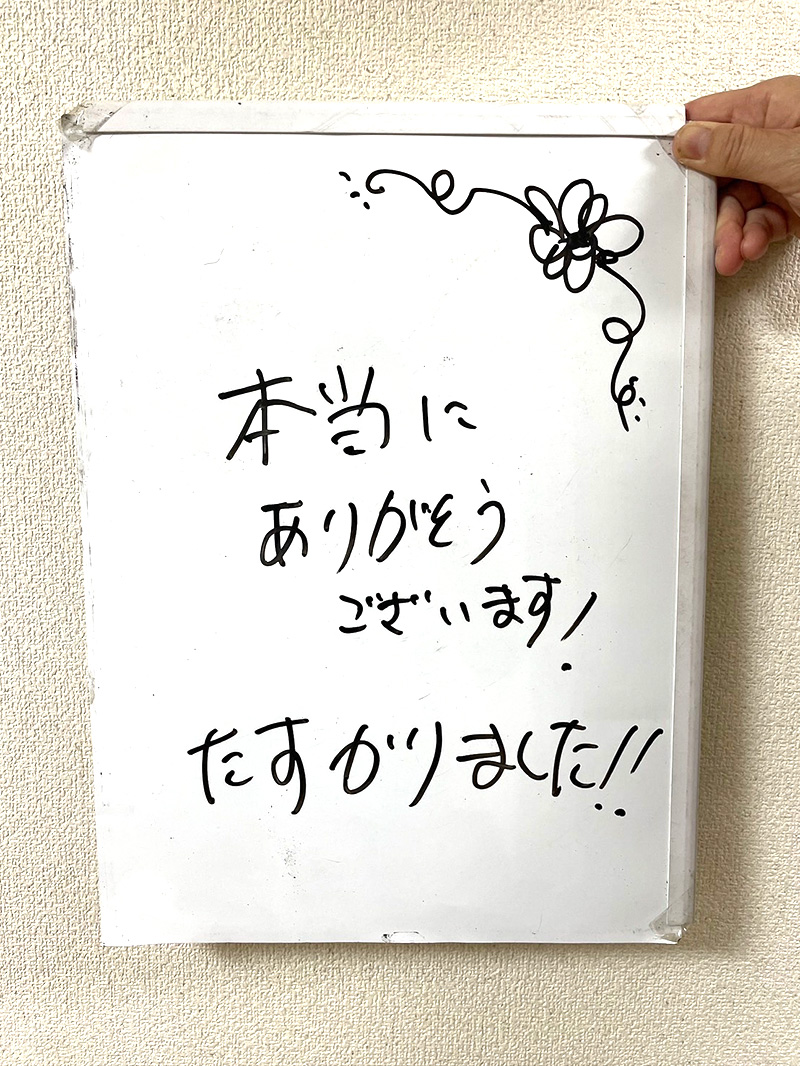 本当に
ありがとう
ございます!
たすかりました!!